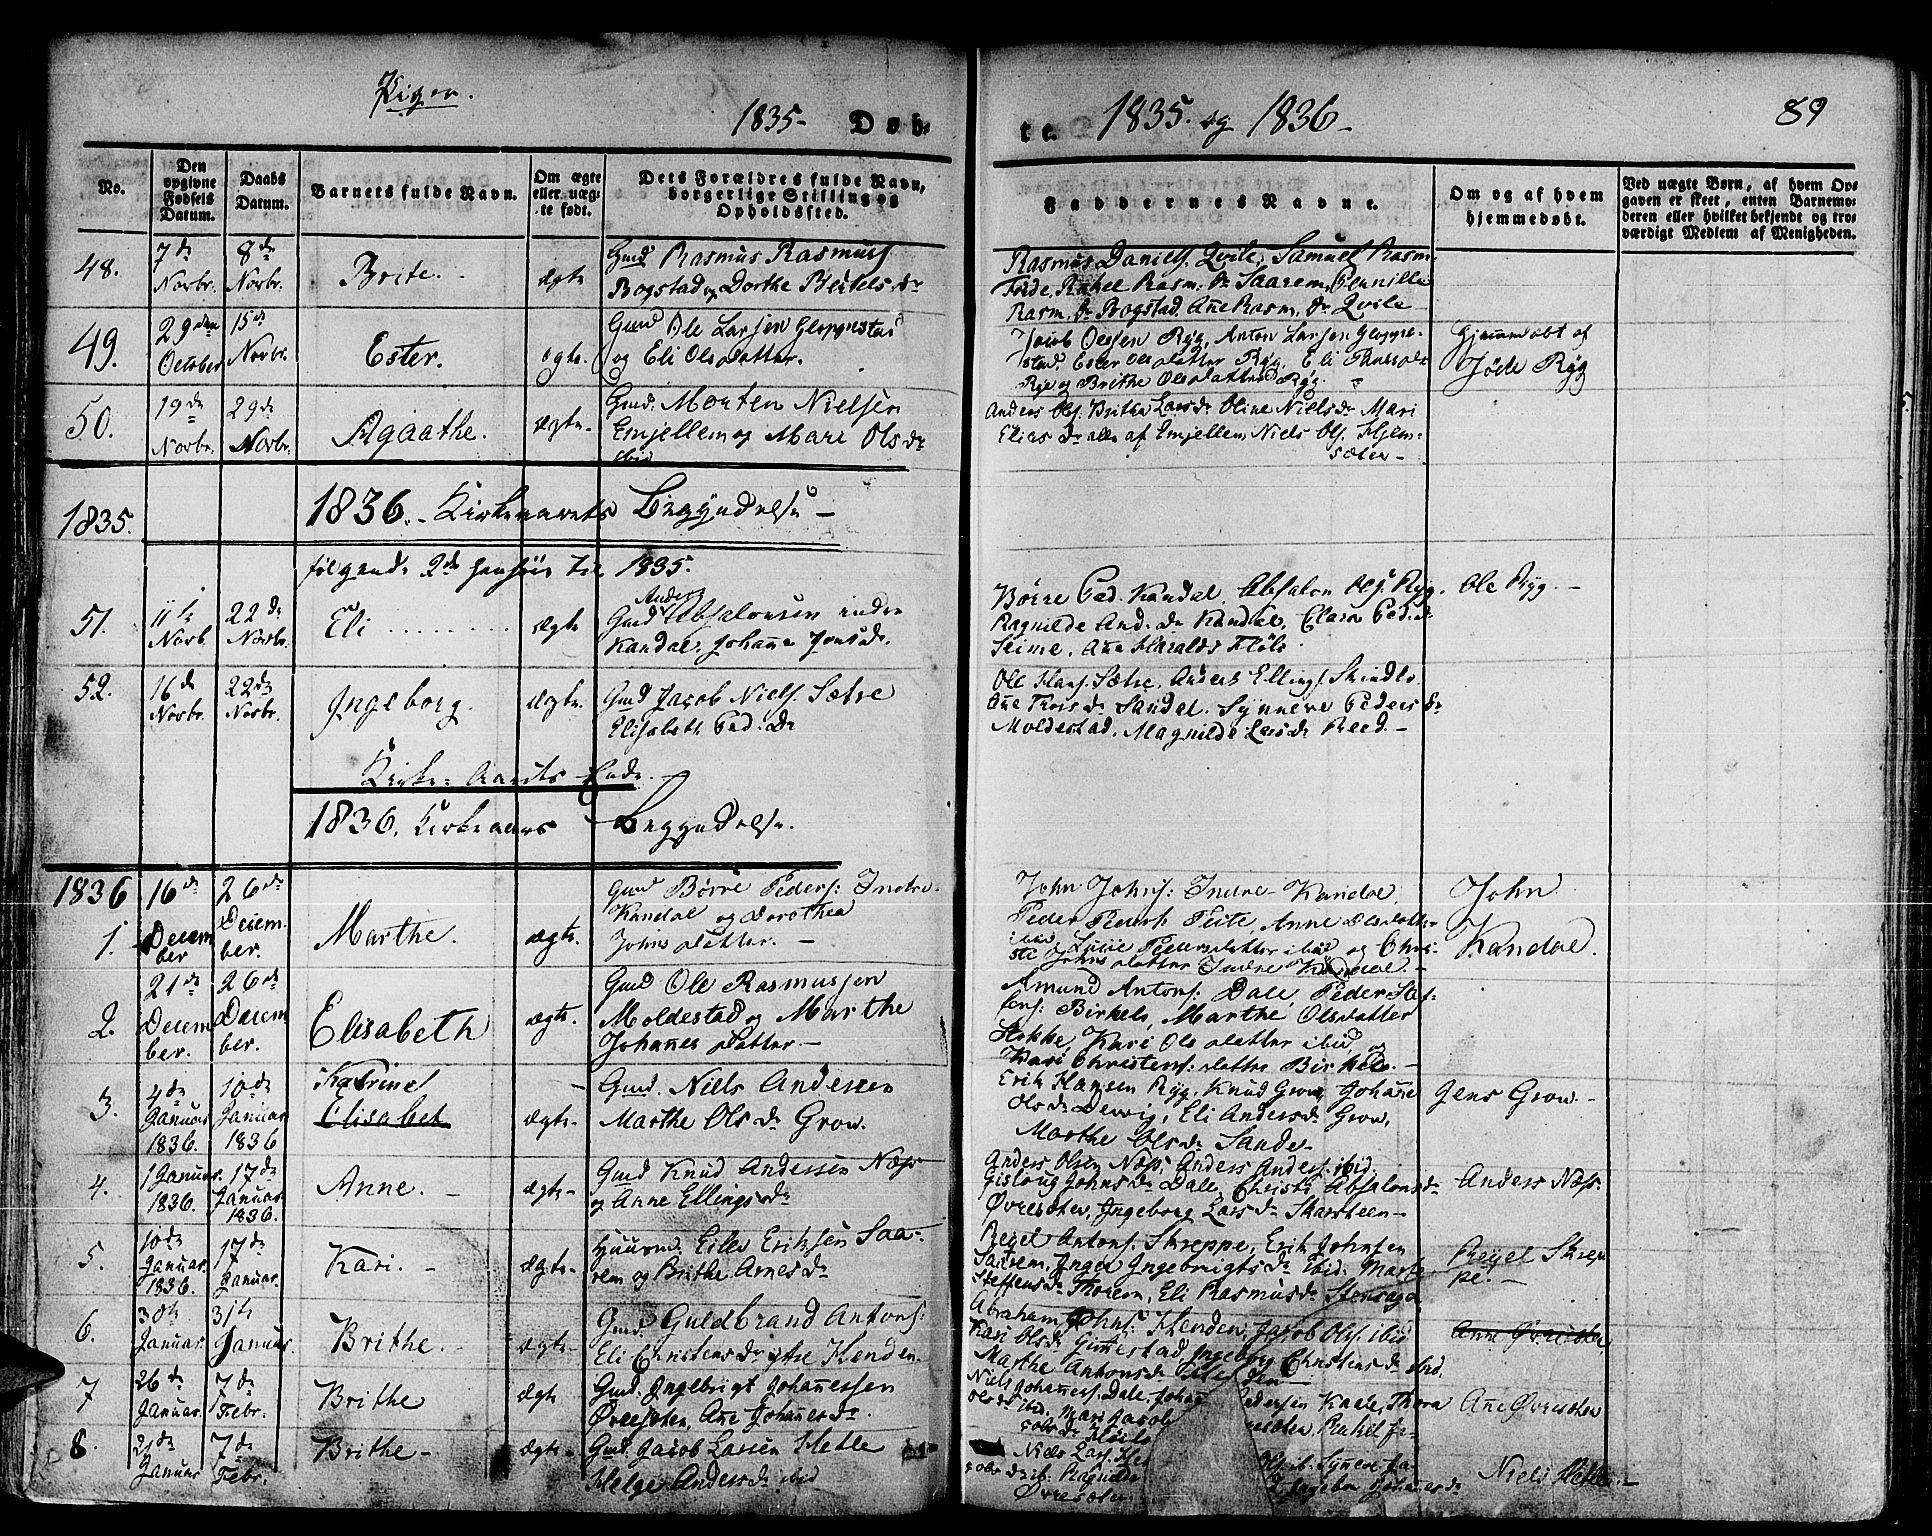 Piger.
1835- Døb-
te. 1835. og 1836-
89
No.
Den opgivne Fødsels Datum.
Daabs Datum.
Barnets fulde Navn.
Om ægte eller uægte født.
Dets Forældres fulde Navn, borgerlige Stilling og Opholdssted.
Faddernes Navne.
Om og af hvem hjemmedøbt.
Ved uægte Børn, af hvem Opgaven er skeet, enten Barnemoderen eller hvilket bekjendt og troværdigt Medlem af Menigheden.
48.
7 de Novbr.
8 de Novbr.
Brite.
ægte
Gmd Rasmus Rasmuss
Bogstad og Dorthe Bertels dr
Rasmus Daniels. Qvile, Samuel Rasm.
Førde, Rahel Rasm. dr Saarem, Pernille
Rasm. dr Bogstad, Ane Rasm. dr Qvile
49.
29 den October
15 de Novbr.
Ester.
ægte.
Gmd Ole Larsen Gloppestad
og Eli Olsdatter.
Jacob Olsen Ryg, Anton Larsen Gloppe-
stad. Ester Olsdatter Ryg, Eli
Ryg og Brithe Olsdatter Ryg.
Hjemmedøbt af
Ryg
50.
19 de Novbr.
29 de Novbr.
Agaathe.
ægte.
Gmd. Morten Nielsen
Emjellem og Mari Ols dr
ibid
Anders Ols. Brithe Lars dr Oline Niels dr Mari
Elias dr alle af Emjellem, Niels Ols. Hjem-
sæter-
1835.
1836. - Kirkeaarets Begyndelse -
følgende 2de henhøre til 1835.
51.
11 te Novb.
22 de Novbr.
Eli
ægte
Gmd Anders Absalonsen indre
Kandal, Johane Jons dr.
Børre Ped. Kandal, Absalon Ols. Ryg.
Ragnilde And. dr Kandal, Clara Ped. dr
Seime. Ane Haralds Fløtr.
Ole Ryg. -
52.
16 de Novbr.
22 de Novbr.
Ingeborg.
ægte.
Gmd Jacob Niels. Sætre
Elisabeth Ped. dr
Ole Hans. Sætre. Anders Ellings. Skindlo
Ane dr Sandal. Synneve Peders dr
Moldestad, Magnilde Lars dr Reed. -
Kirke-Aarets Ende.
1836. Kirkeaars Begyndelse.
1836
1.
16 de December
26 de December.
Marthe.
ægte.
Gmd Børre Peders: Indre-
Kandal og Dorothea
Johns datter. -
John Johns: Indre-Kandal,
Peder Peders: Teite, Anne Olsdatter
ibid, Peders datter ibid og Chri-
ste Johns datter Indre Kandal. -
John
Kandal.
2.
21 de December.
26 de December.
Elisabeth
ægte.
Gmd Ole Rasmussen
Moldestad og Marthe
Johanes datter. -
Amund Antons: Dale, Peder Stef-
fens: Birkelo, Marthe Olsdatter
Hokke, Kari Ols datter ibid og
Kari Christens: datter Birkelo. -
3.
4 de Januar 1836.
10 de Januar 1836
Katrine
Elisabet
ægte-
Gmd. Niels Andersen
Marthe Ols dr Grow.
Erik Hansen Ryg, Knud Grow, Johane
Ols dr Dervig, Eli Anders dr Grow,
Marthe Ols dr Sande-
Jens Grow. -
4.
1 Januar. 1836.
17 de Januar 1836.
Anne. -
ægte-
Gmd Knud Andersen Næss
og Anne Ellings dr
Anders Olsen Næss, Anders Anders. ibid.
Gislaug Johns dr Dale, Christi Absalons dr
Øvresæter, Ingeborg Lars dr Skarsteen-
Anders Næss.
5.
10 de Januar. 1836.
17 de Januar.
Kari. -
ægte-
Huusmd. Eilev Eriksen Saa-
rem og Brithe Arnes dr
Regel Antons. Skreppe, Erik Johnsen
Saarem, Inger Ingebrigts dr ibid. Marte
Steffens dr Thoreim, Eli Rasmus dr Stensager
Regel Skrep
pe. -
6.
30 te Januar.
31 te Januar.
Brithe.
ægte-
Gmd. Guldbrand Antons:
Eli Christens dr ytre Henden
Abraham Johns. Henden, Jacob Ols. ibid
Kari Ols dr Gimmestad, Ingeborg Christens dr ibid,
Marthe Antons dr Henden
Anne Øvresæter
7
26 de Januar.
7 de Febr.
Brithe
ægte-
Gmd. Ingebrigt Johanessen
Øvresæter, Ane Johanes dr
Niels Johaness. Dale, Johan
Ols dr ibid. Mari Jacob
dersen Kaale, Thora
sæter, Rakel Ja-
Ane Øvresæter
8.
21 de Januar
7 de Febr.
Brithe-
ægte-
Gmd. Jacob Larsen Hetle
Helge Anders dr ibid
Niels Lars. Het
Ragnilde
Øvresæter
ib. Synneve Ja-
Ingebor Johanes dr
Niels Hetle. -